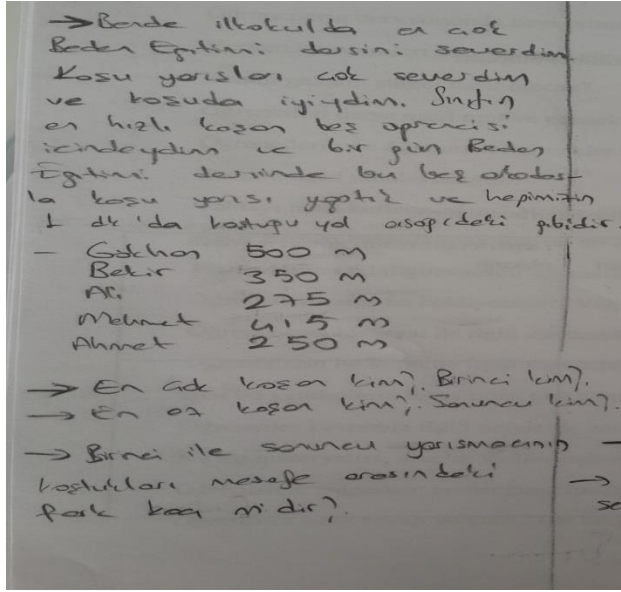 → Bende ilkokulda en çok
Beden Eğitimi dersini severdim
Koşu yarışları çok severdim
ve koşuda iyiydim. Sınıfın
en hızlı koşan beş öğrencisi
içindeydim ve bir gün Beden
Eğitimi dersinde bu beş arkadaş-
la koşu yarışı yaptık ve hepimizin
1 dk'da koştuğu yol aşağıdaki gibidir.
- Gökhan 500 m
Bekir 350 m
Ali 275 m
Mehmet 415 m
Ahmet 250 m
→ En çok koşan kim?. Birinci kim?.
→ En az koşan kim?. Sonuncu kim?.
→ Birinci ile sonuncu yarışmacının -
koştukları mesafe arasındaki →
fark kaç m'dir?. se